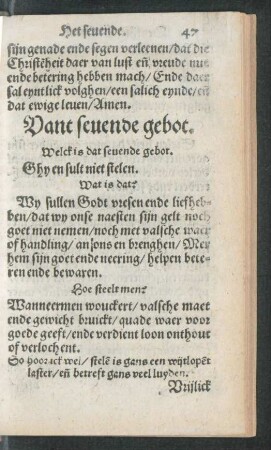 Het seuende. 47
sijn genade ende segen verleenen/dat die
Christēheit daer van lust eñ vreude
ende betering hebben mach/Ende daer
sal eyntlick volghen/een salich eynde/eñ
dat ewige leuen/Amen.
Vant seuende gebot.
Welck is dat seuende gebot.
Ghy en sult niet stelen.
Wat is dat?
Wy sullen Godt vresen ende liefheb-
ben/dat wy onse naesten sijn gelt noch
goet niet nemen/noch met valsche waer
of handling/an ons en brenghen/Mer
hem sijn goet ende neering/helpen bete-
ren ende bewaren.
Hoe steelt men?
Wanneermen wouckert/valsche maet
ende gewicht bruickt/quade waer voor
goede geeft/ende verdient loon onthout
of verlochent.
So hoor ick wel/stelē is gans een wijtlopēt
laster/eñ betreft gans veel luyden.
Vrijlick